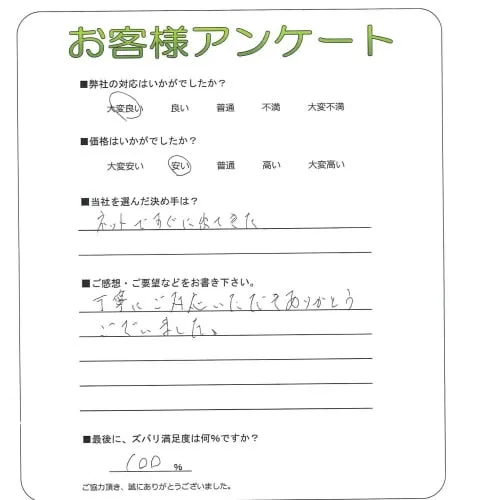 お客様アンケート
■弊社の対応はいかがでしたか?
大変良い 良い 普通 不満 大変不満
■価格はいかがでしたか?
大変安い 安い 普通 高い 大変高い
■当社を選んだ決め手は?
ネットですぐに出てきた
■ご感想・ご要望などをお書き下さい。
丁寧にご対応いただきありがとう
ございました。
■最後に、ズバリ満足度は何%ですか?
100 %
ご協力頂き、誠にありがとうございました。